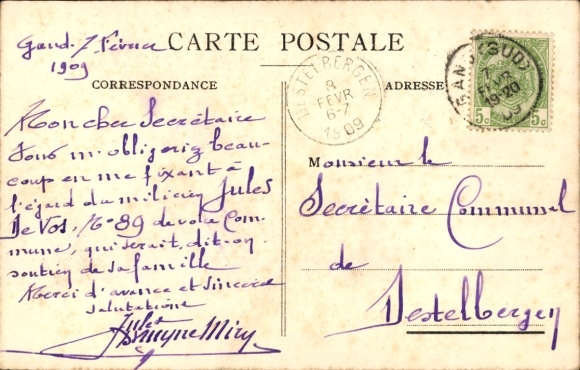 Gand. 7 Février
1909
CARTE POSTALE
CORRESPONDANCE
ADRESSE
DESTELBERGEN
8
FEVR
6-7
1909
GAND (SUD)
7
FEVR
19-20
09
5c 5c
Mon cher Secrétaire
Vous m'obligeriez beau-
coup en me fixant à
l'égard du milicien Jules
De Vos, No 89 de votre Com-
mune, qui serait, dit-on
soutien de sa famille.
Merci d'avance et sincères
salutations
Jules
Monsieur le
Secrétaire Communal
de
Destelbergen